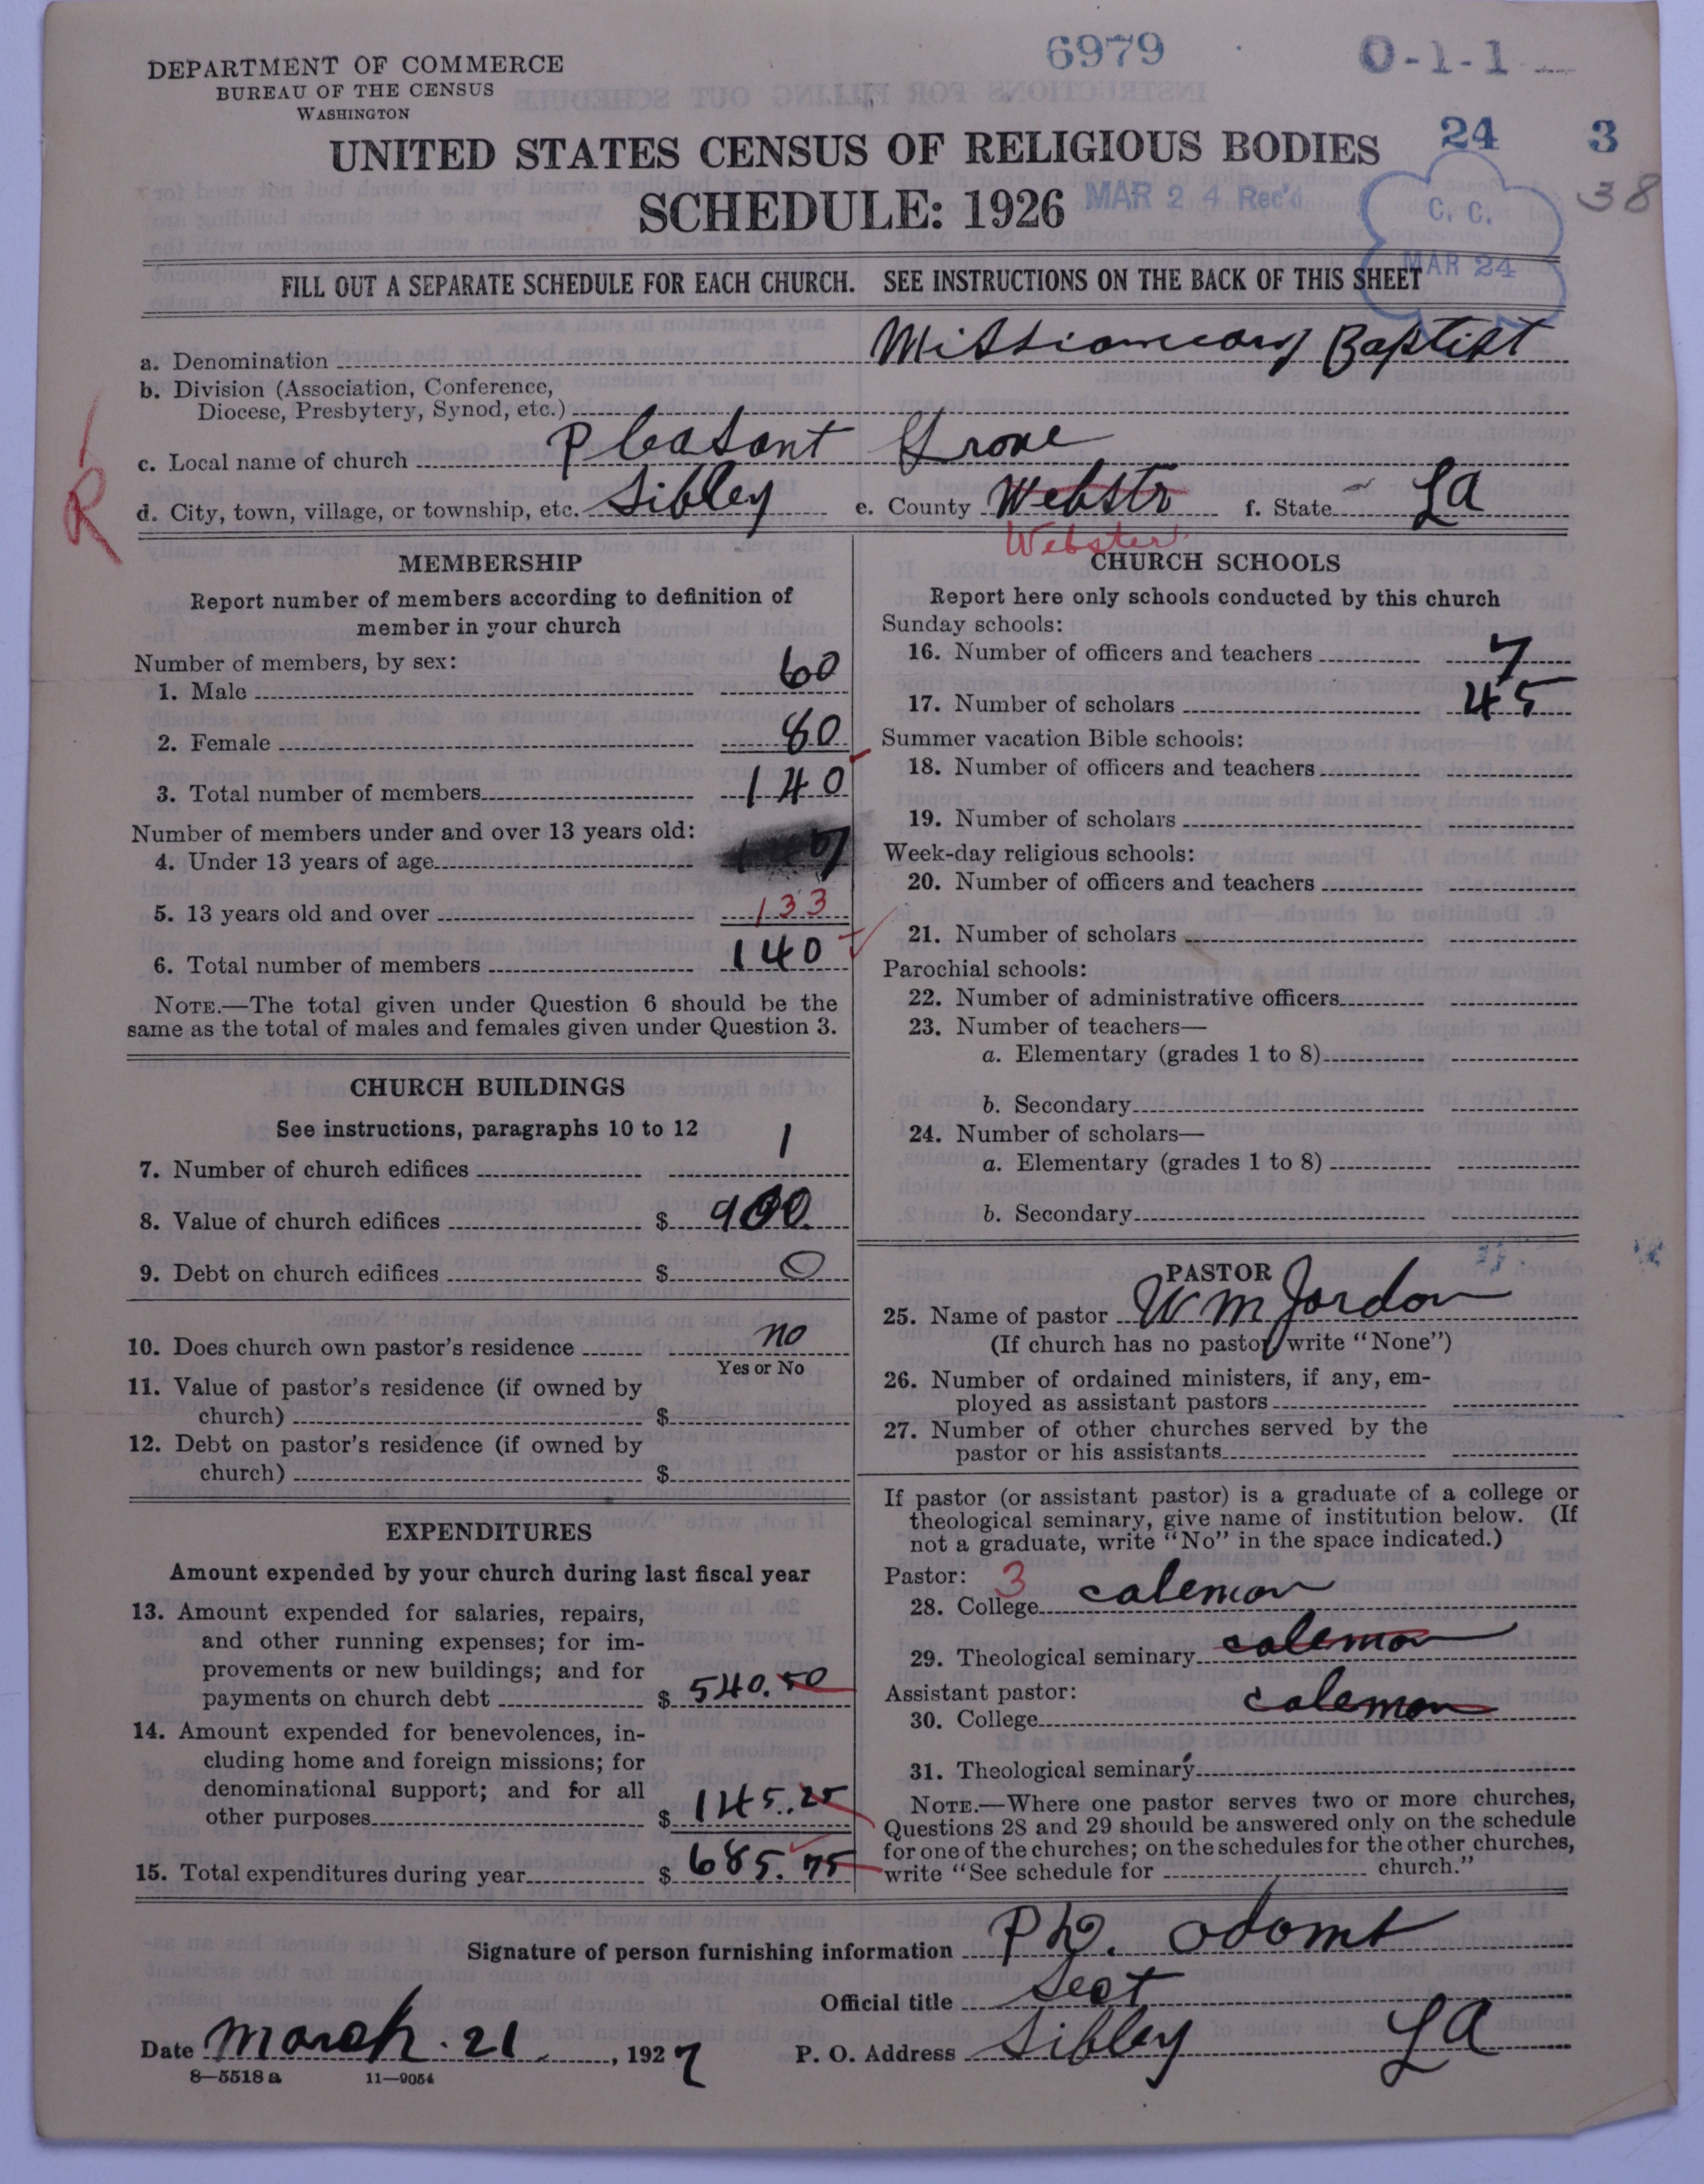 6979
0-1-1
DEPARTMENT OF COMMERCE
BUREAU OF THE CENSUS
WASHINGTON
24 3
UNITED STATES CENSUS OF RELIGIOUS BODIES
38
SCHEDULE: 1926
MAR 24 Rec'd
C. C.
MAR 24
FILL OUT A SEPARATE SCHEDULE FOR EACH CHURCH. SEE INSTRUCTIONS ON THE BACK OF THIS SHEET
a. Denomination Missionary Baptist
b. Division (Association, Conference,
Diocese, Presbytery, Synod, etc.)
c. Local name of church Pleasant Grove
R
d. City, town, village, or township, etc. Sibley e. County Webstr f. State La
Webster
MEMBERSHIP
Report number of members according to definition of
member in your church
Number of members, by sex:
1. Male 60
2. Female 80
3. Total number of members 140
Number of members under and over 13 years old:
4. Under 13 years of age 7
5. 13 years old and over 133
6. Total number of members 140
NOTE.—The total given under Question 6 should be the
same as the total of males and females given under Question 3.
CHURCH BUILDINGS
See instructions, paragraphs 10 to 12
7. Number of church edifices 1
8. Value of church edifices $ 900
9. Debt on church edifices $ 0
10. Does church own pastor's residence no
Yes or No
11. Value of pastor's residence (if owned by
church) $
12. Debt on pastor's residence (if owned by
church) $
EXPENDITURES
Amount expended by your church during last fiscal year
13. Amount expended for salaries, repairs,
and other running expenses; for im-
provements or new buildings; and for
payments on church debt $ 540.50
14. Amount expended for benevolences, in-
cluding home and foreign missions; for
denominational support; and for all
other purposes $ 145.25
15. Total expenditures during year $ 685.75
CHURCH SCHOOLS
Report here only schools conducted by this church
Sunday schools:
16. Number of officers and teachers 7
17. Number of scholars 45
Summer vacation Bible schools:
18. Number of officers and teachers
19. Number of scholars
Week-day religious schools:
20. Number of officers and teachers
21. Number of scholars
Parochial schools:
22. Number of administrative officers
23. Number of teachers—
a. Elementary (grades 1 to 8)
b. Secondary
24. Number of scholars—
a. Elementary (grades 1 to 8)
b. Secondary
PASTOR
25. Name of pastor W M Jordon
(If church has no pastor, write "None")
26. Number of ordained ministers, if any, em-
ployed as assistant pastors
27. Number of other churches served by the
pastor or his assistants
If pastor (or assistant pastor) is a graduate of a college or
theological seminary, give name of institution below. (If
not a graduate, write "No" in the space indicated.)
Pastor: 3
28. College coleman
29. Theological seminary coleman
Assistant pastor:
30. College coleman
31. Theological seminary
NOTE.—Where one pastor serves two or more churches,
Questions 28 and 29 should be answered only on the schedule
for one of the churches; on the schedules for the other churches,
write "See schedule for church."
Signature of person furnishing information P. odoms
Official title Sect
Date March. 21, 1927 P. O. Address Sibley La
8—5518a 11—9054